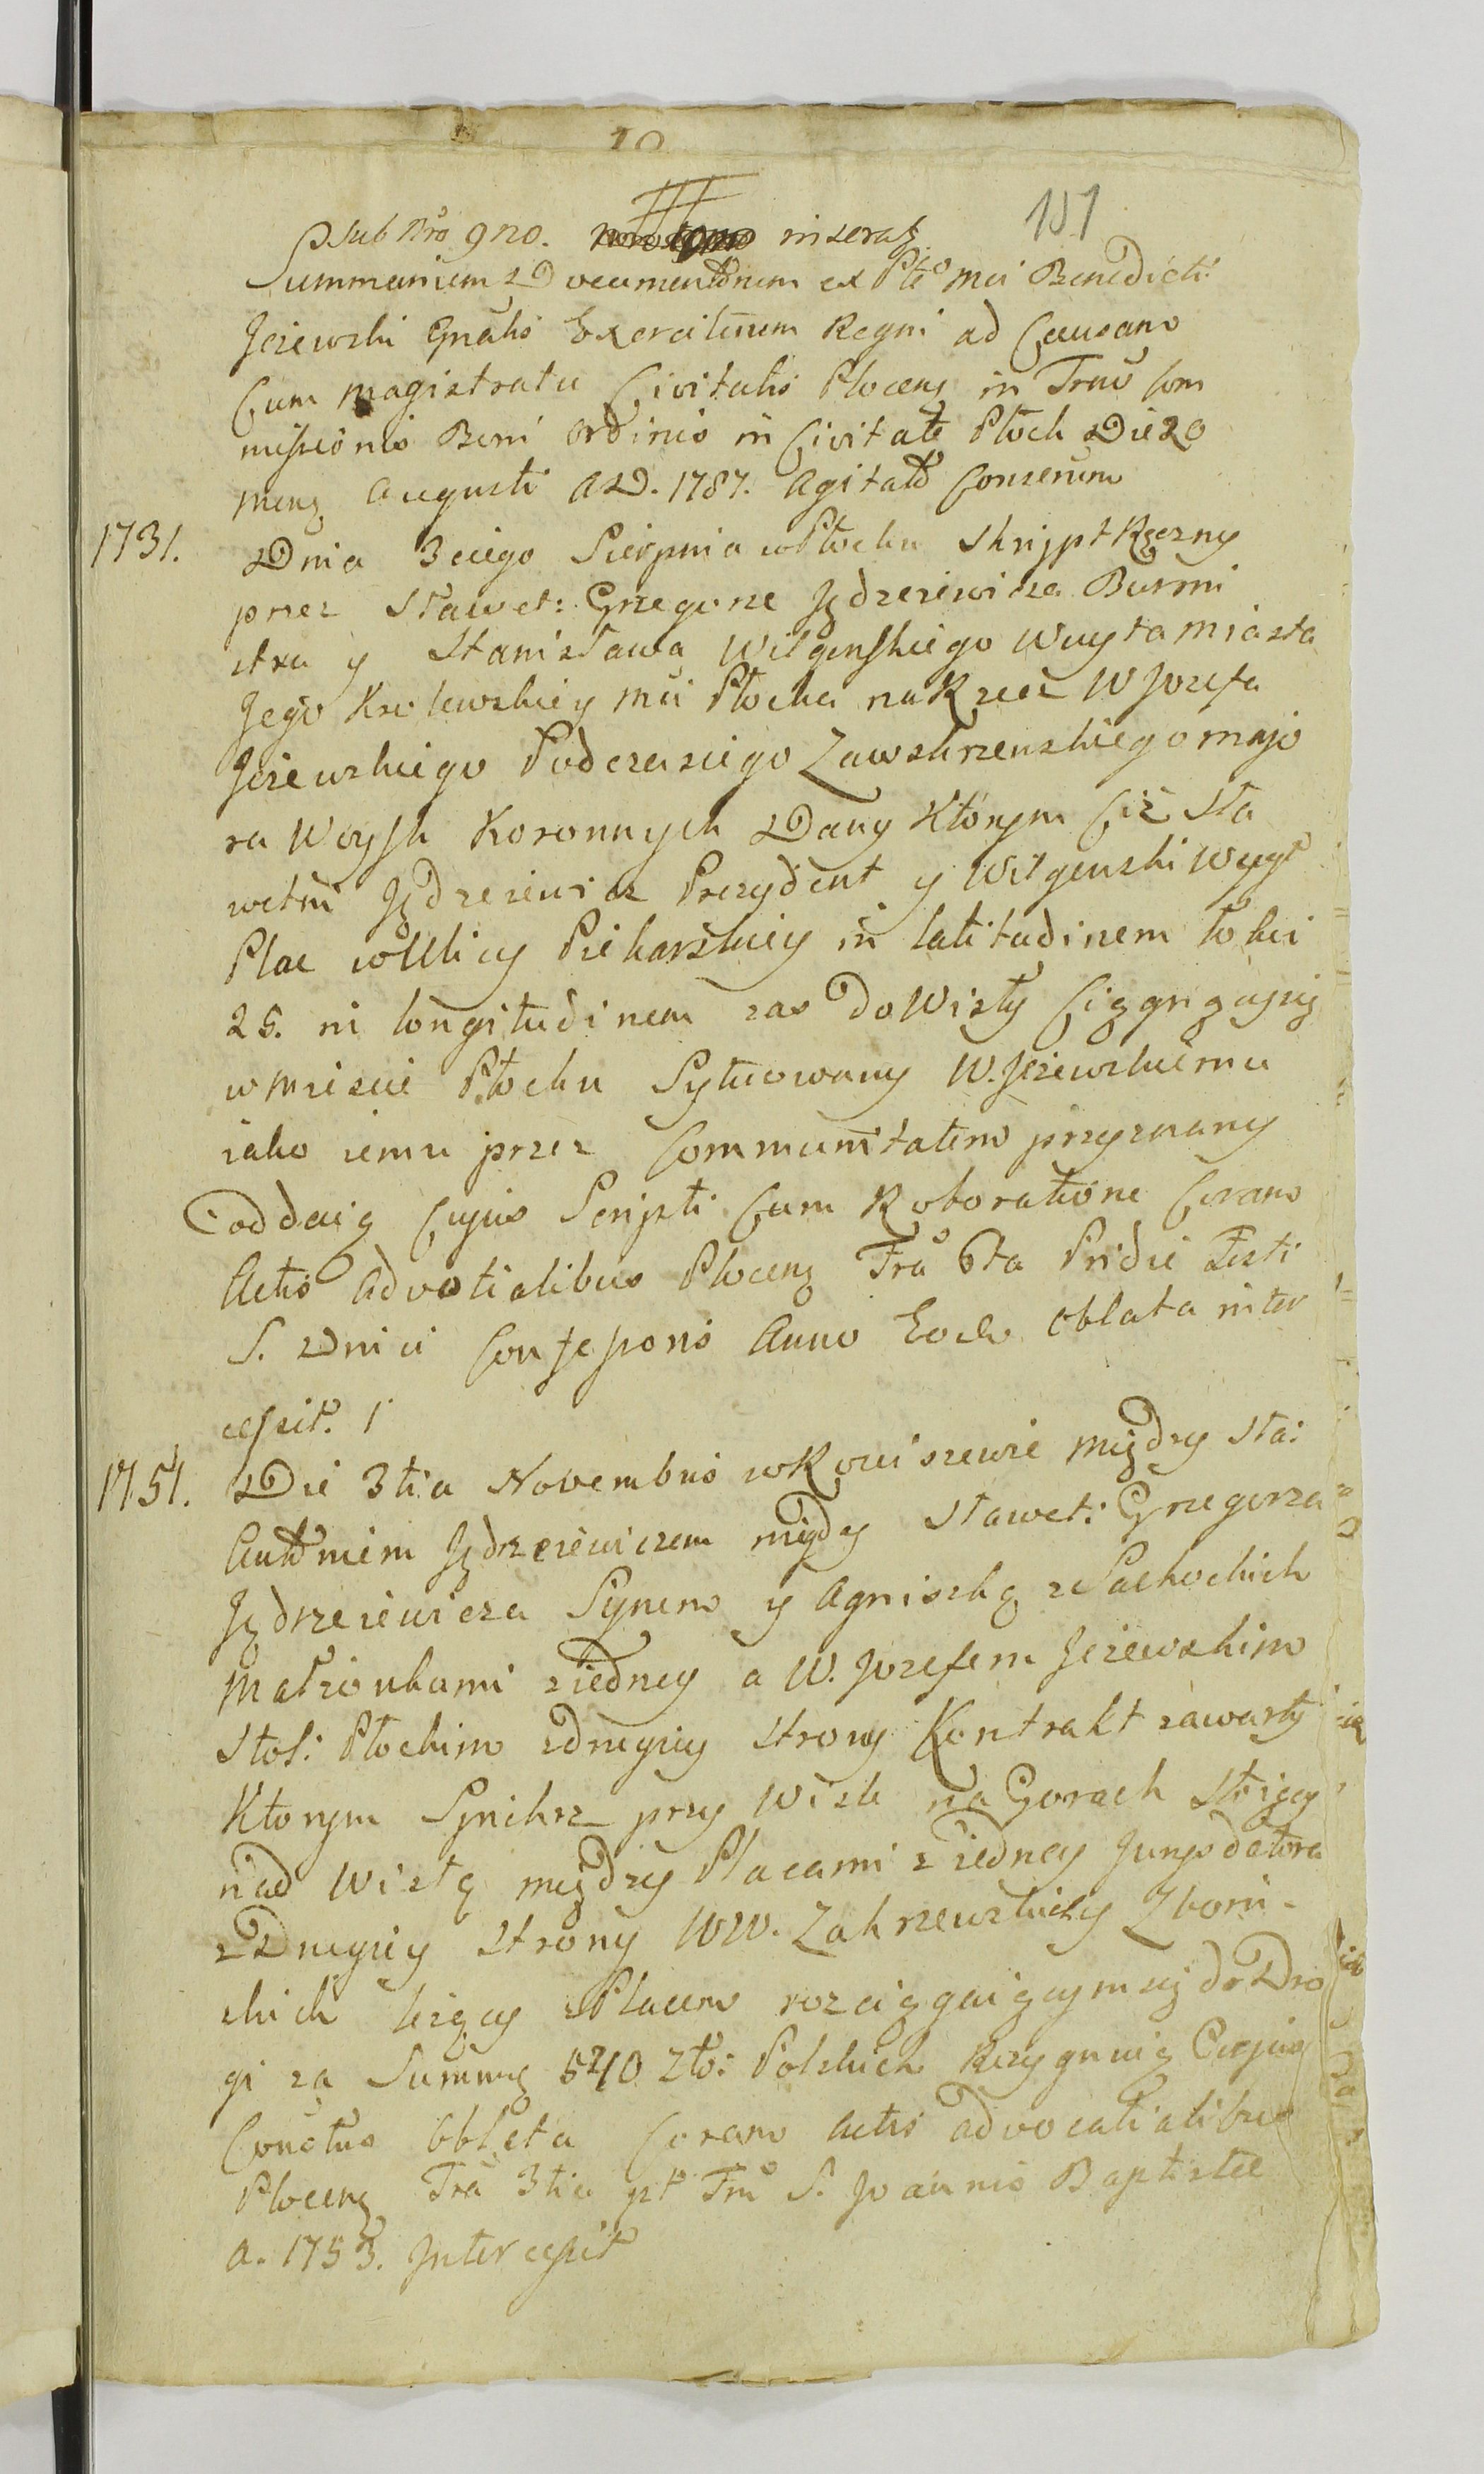 10
101
Sub Nro 9no. inseratę
Summarium Documentorum ex Pte Mei Benedicti
Jeżewski Gnalis Exercituum Regni ad Causam
Cum Magistratu Civitatis Plocens in Truo Com
missionis Boni Ordinis in Civitate Płock Die 20
mens Augusti A D. 1787. Agitato Conserum
1731. Dnia 3ciego Sierpnia w Płocku Skrypt Ręczny
przez Sławet: Grzegorza Jędrzeiewicza Burmi
strza y Stanisława Wilgenskiego Wuyta Miasta
Jego Krolewskiey Mci Płocka na Rzecz W Jozefa
Jezewskiego Podczaszego Zawskrzenskiego majo
ra Woysk Koronnych Dany Ktorym Ciż Sła
wetni Jędrzeiewicz Prezydent y Wilgenski Wuyt
Plac w Ulicy Piekarskiey in latitudinem łokci
25. in longitudinem zas do Wisły Ciągnący się
w Miescie Płocku Sytuowany W. Jezewskiemu
iako iemu przez Communitatem przyznany
oddaią Cujus Scripti Cum Roboratione Coram
Actis Advocatialibus Plocens Fra 6ta Pridie Festi
S. Dnici Confessoris Anno Eode Oblata inter
cessit. 1
1751. Die 3tia Novembris w Kowiszewie między Sła:
Antonim Jędrzeiewiczem między Sławet: Grzegorza
Jędrzeiewicza Synem y Agniszką z Sachockich
Małzonkami z iedney a W. Jozefem Jeżewskim
Stol: Płockim z drugiey strony Kontrakt zawarty
Ktorym Spichrz przy Wisle na Gorach Stoiący
nad Wisłą między Placami z iedney Jurysdatora
z Drugiey Strony WW. Zakrzewskich y Zboin-
skich leżący z Placem rozciągaiącym się do Dro
gi za Summę 5210 Zło: Polskich Rezygnuią Cujus
Conctus Oblata Coram Actis advocatialibus
Plocens Fra 3tia pt Fm S. Joannis Baptistae
A. 1753. Intercessit